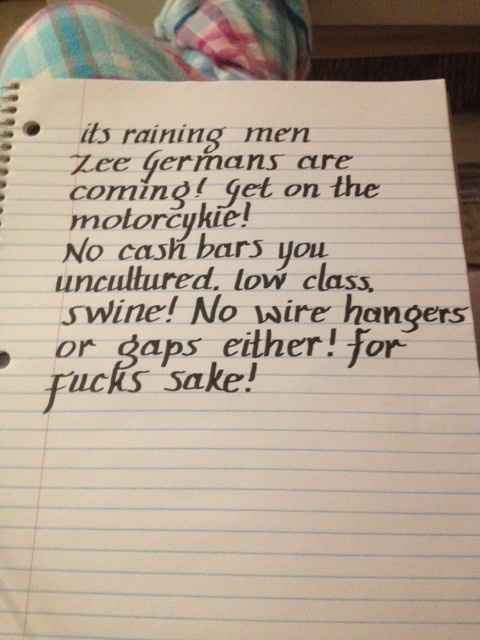 its raining men
Zee Germans are
coming! Get on the
motorcykie!
No cash bars you
uncultured, low class,
swine! No wire hangers
or gaps either! for
fucks sake!